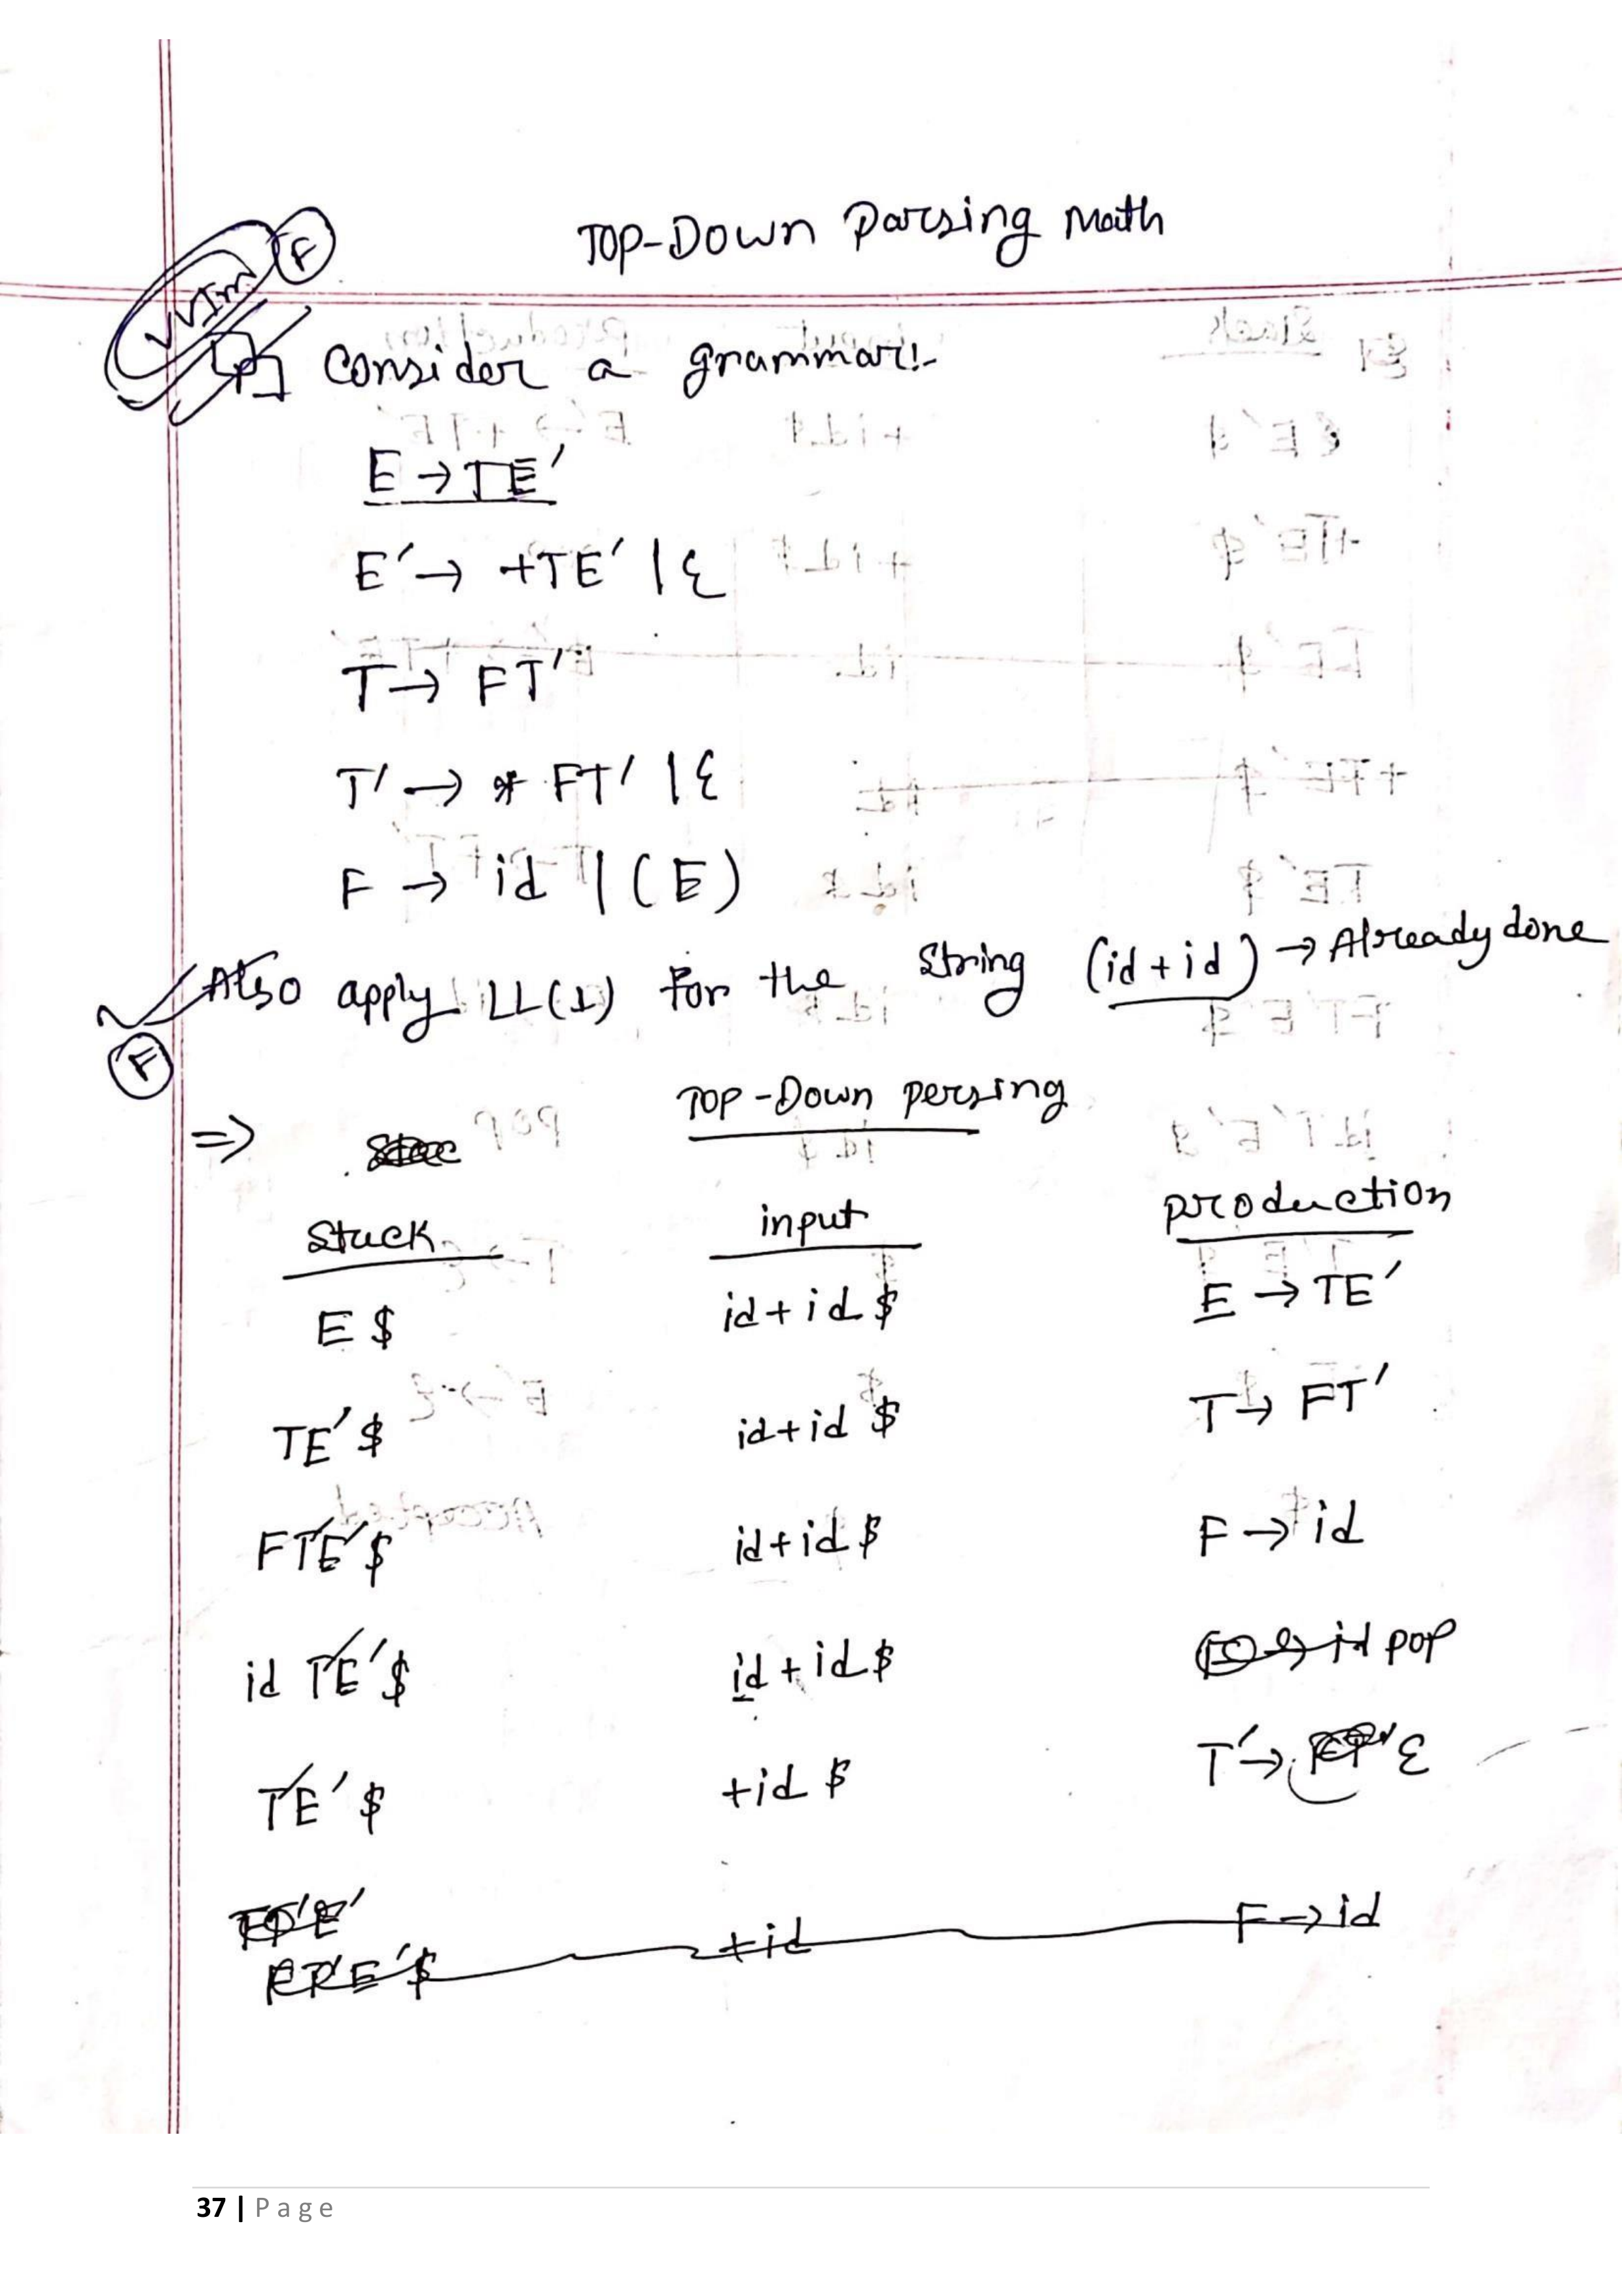 TOP-DOWN Parsing Math
F
VVIm
Consider a grammar:-
E → TE′
E′ → +TE′ | ε
T → FT′
T′ → * FT′ | ε
F → id | (E)
Also apply LL(1) for the String (id+id) → Already done
F
⇒ TOP-Down persing
Stack input production
E $ id+id $ E → TE′
TE′ $ id+id $ T → FT′
FT′E′ $ id+id $ F → id
id T′E′ $ id+id $ pop
T′E′ $ +id $ T′ → ε
+id F → id
37 | Page